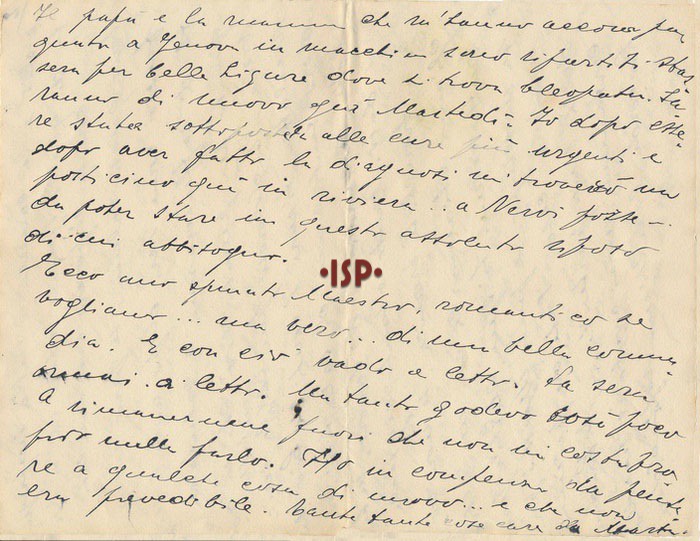 Il papà e la mamma che m'hanno accompa-
gnata a Genova in macchina sono ripartiti stas
sera per Celle Ligure dove si trova Cleopatra. Sa-
ranno di nuovo quà Martedì. Io dopo esse-
re stata sottoposta alle cure più urgenti e
dopo aver fatto la diagnosi mi troverò un
posticino quà in riviera.. a Nervi forse -
da poter stare in questo assoluto riposo
di cui abbisogno.
Ecco uno Maestro, romantico se
vogliamo... ma vero... di una bella comme
dia. E con ciò vado a letto. La sera
a letto. Un tanto godevo così poco
a rimanermene fuori che non mi costa pro
prio nulla farlo. Ho in compenso da pensa
re a qualche cosa di nuovo... e che non
era prevedibile. Tante tante cose care da
•ISP•